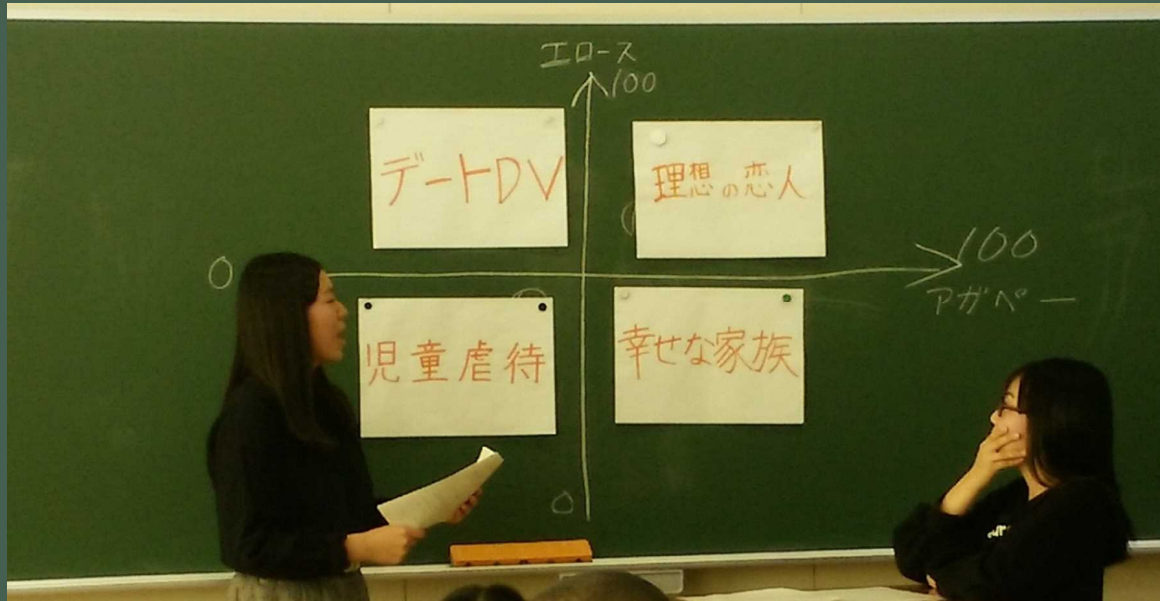 エロース
100
デートDV
理想の恋人
0
100
アガペー
児童虐待
幸せな家族
0